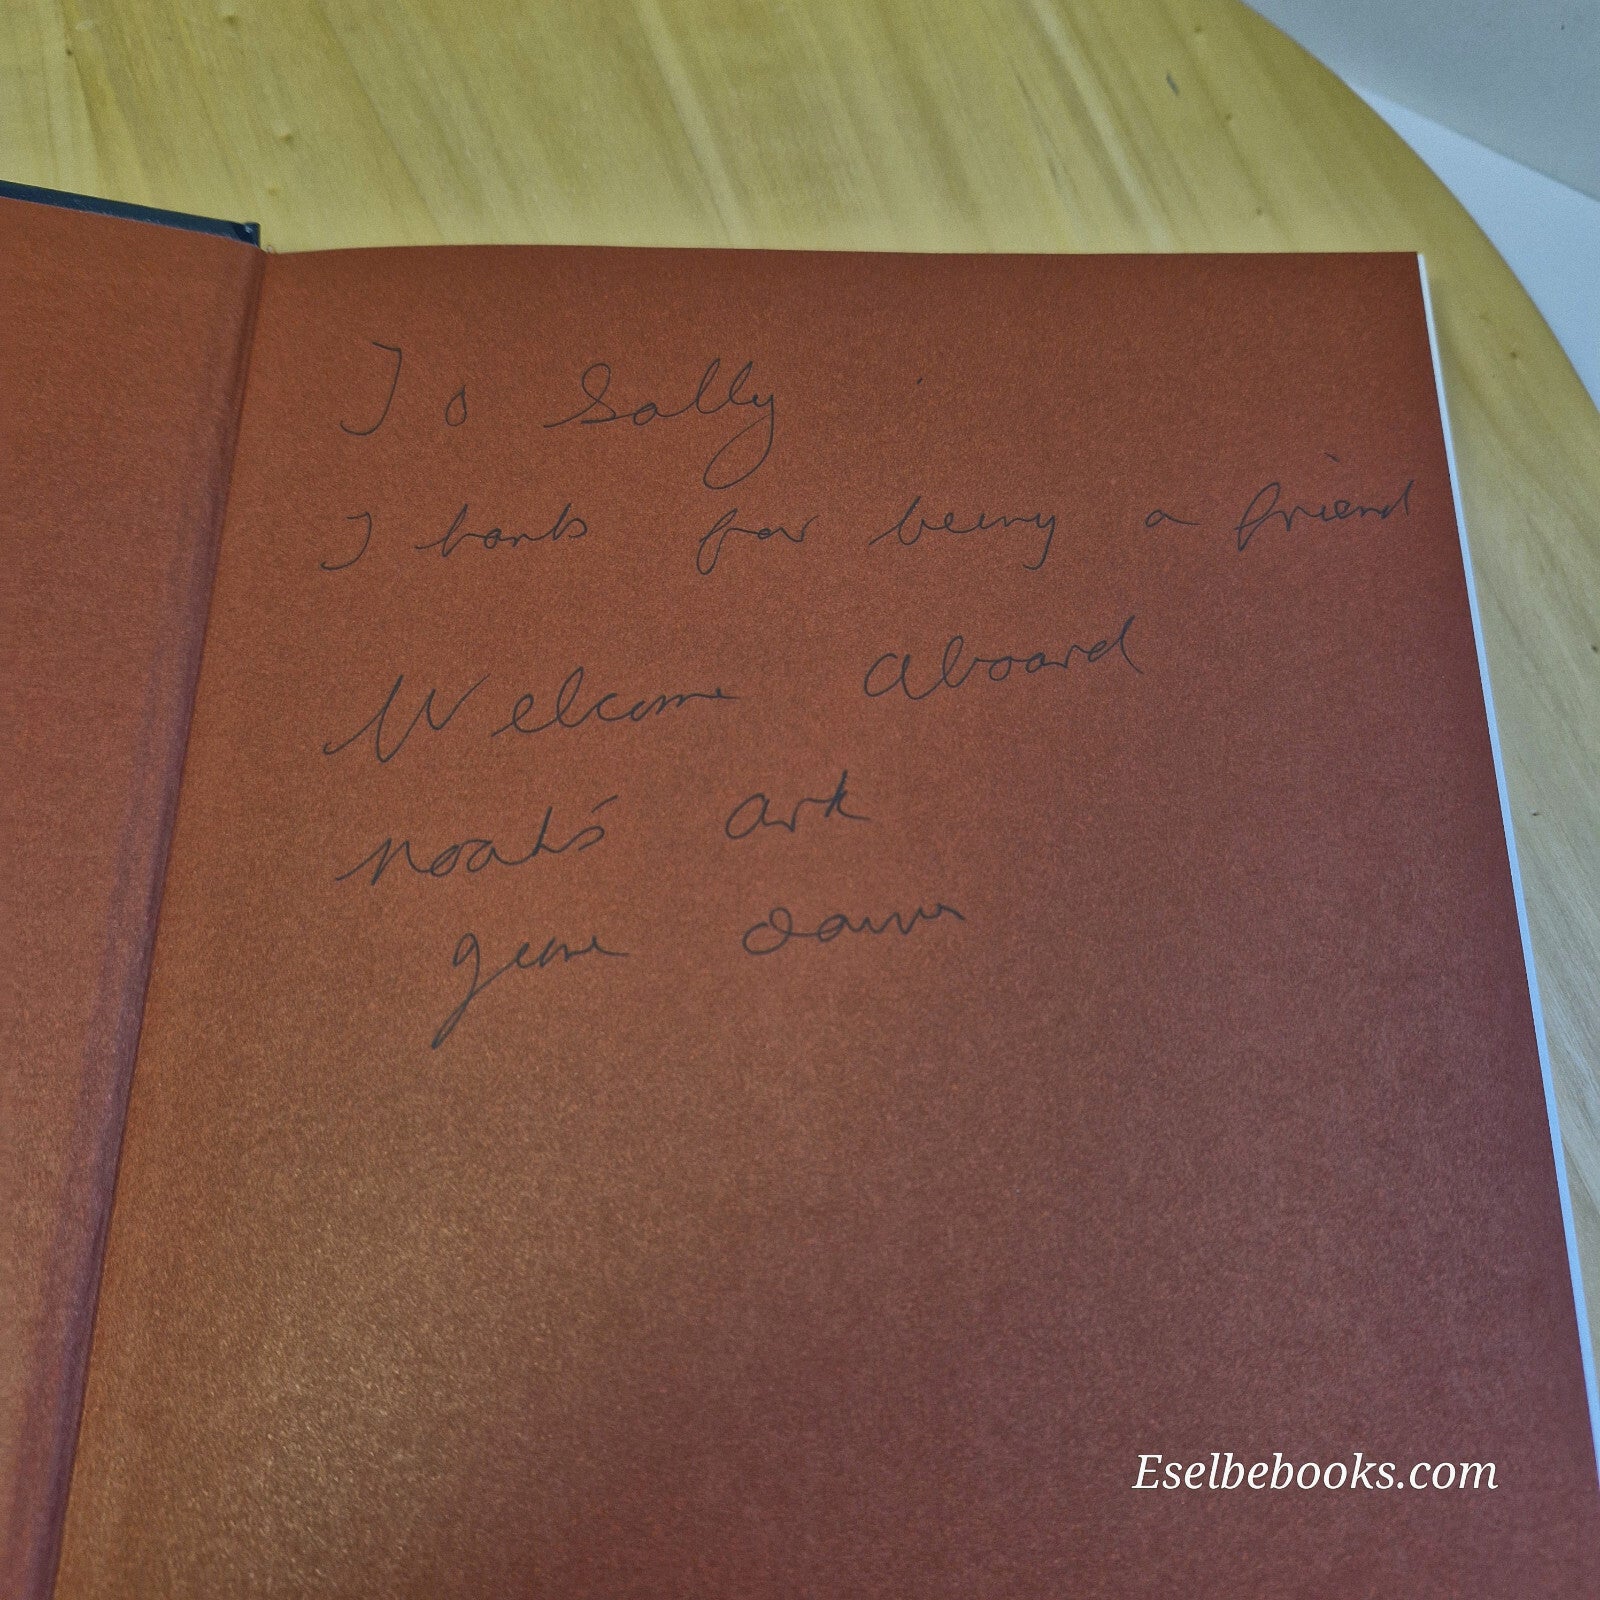 To Sally
Thanks for being a friend
Welcome aboard
Noah's Ark
Gene
Eselbebooks.com